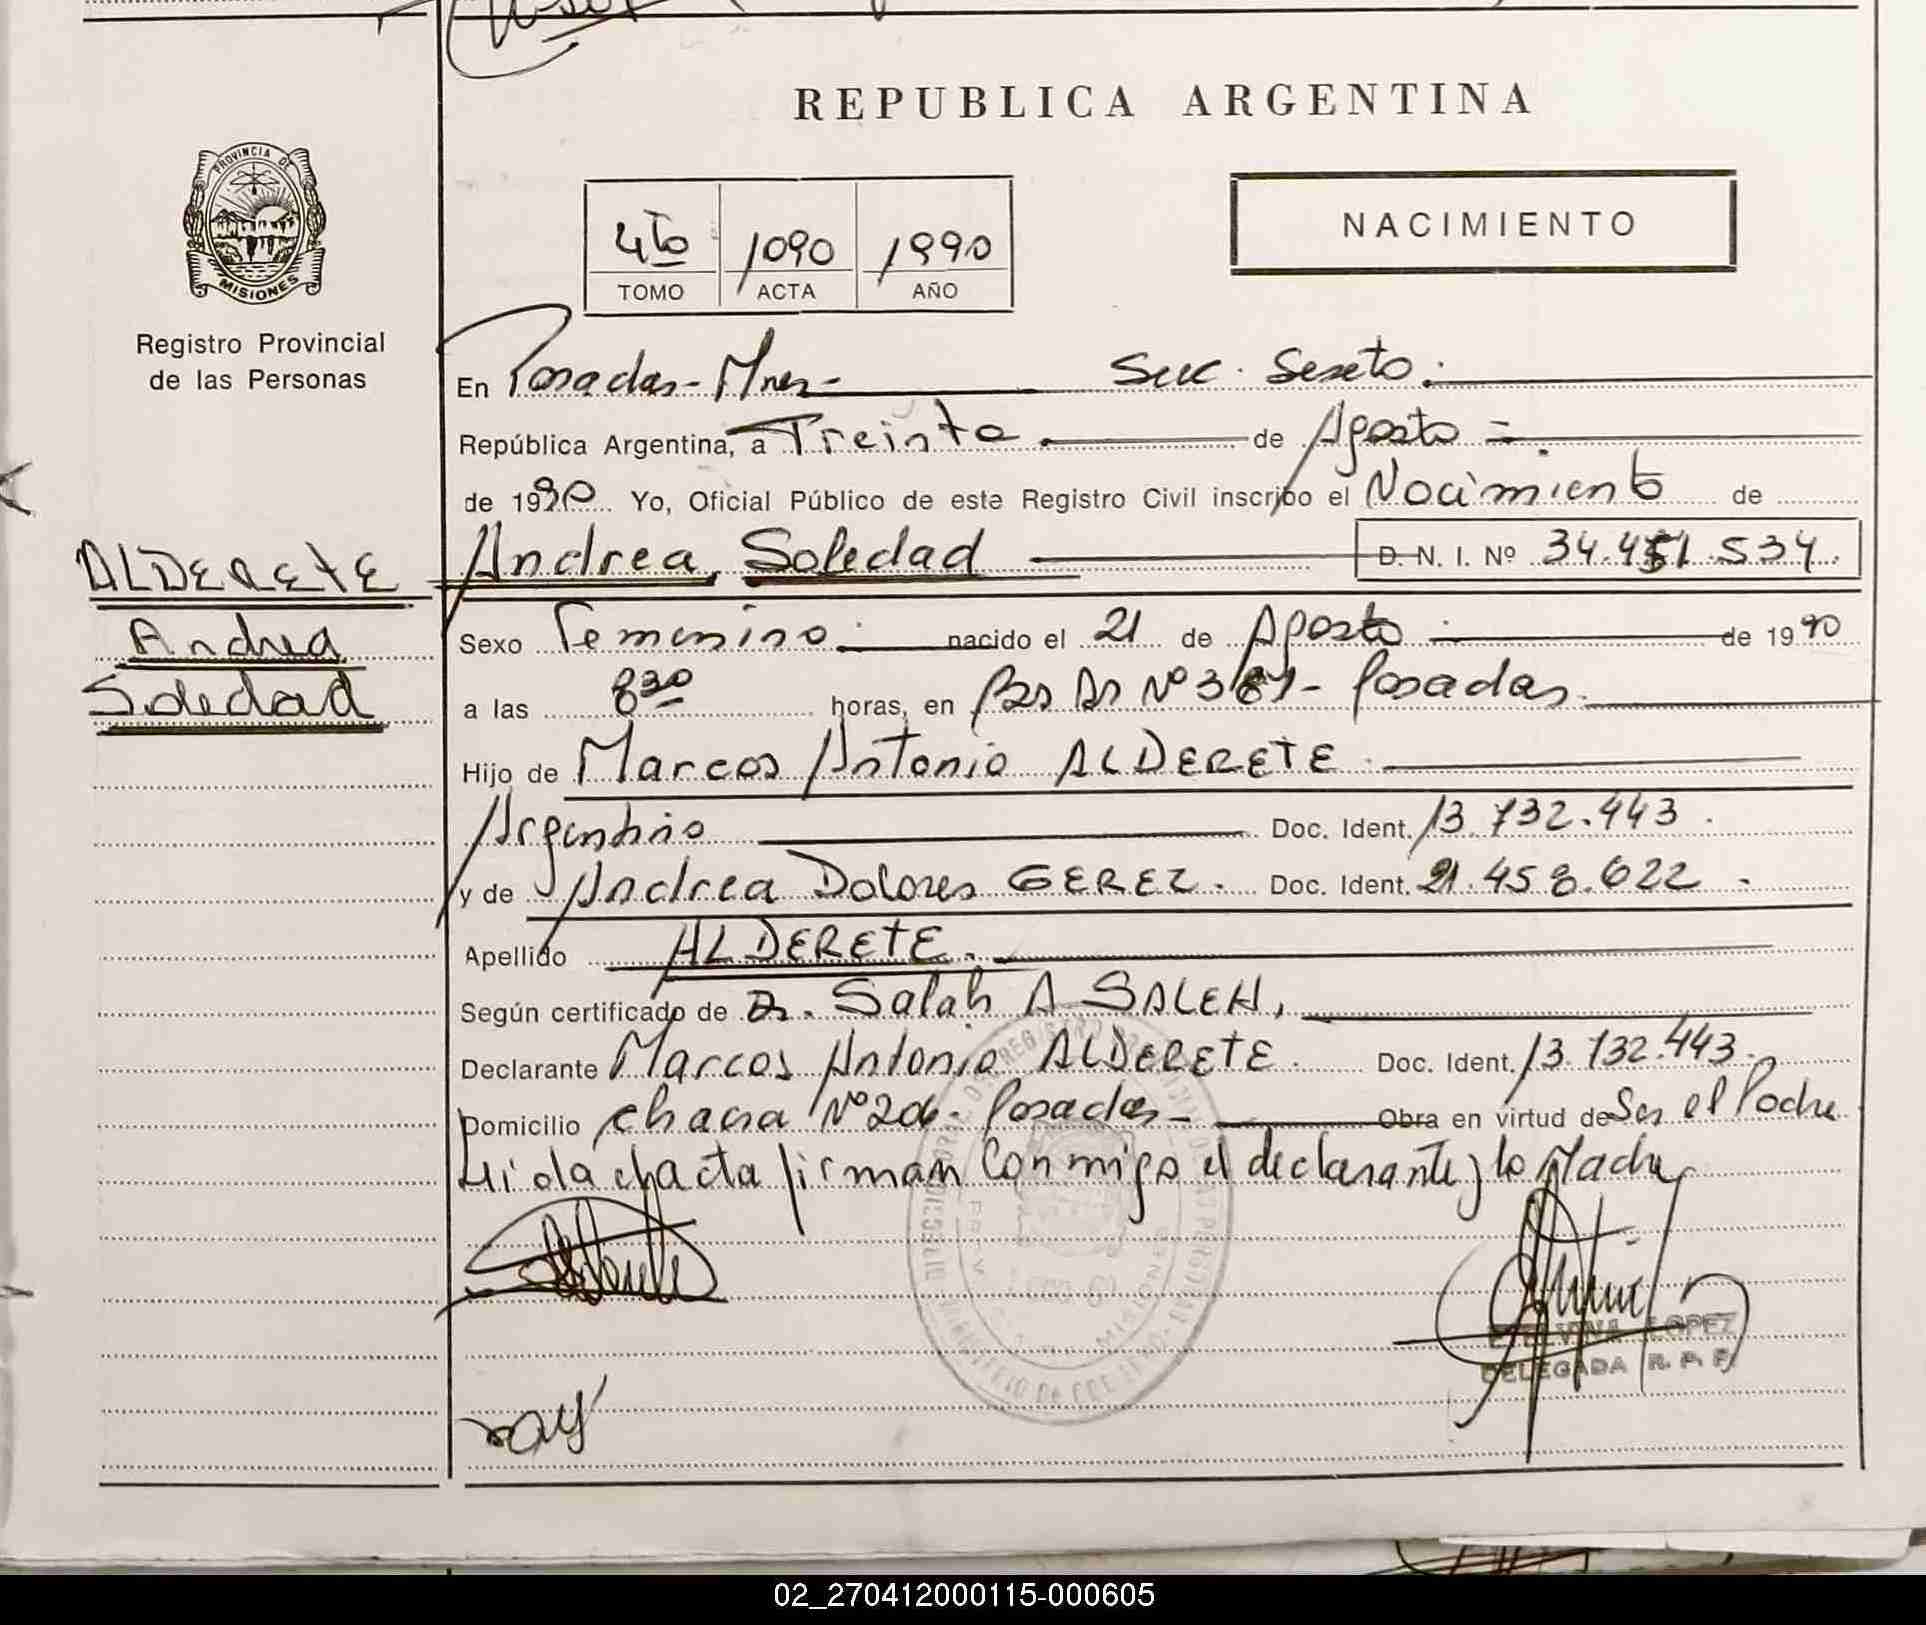 REPUBLICA ARGENTINA
PROVINCIA DE
MISIONES
Registro Provincial
de las Personas
4to 1090 1990
TOMO ACTA AÑO
NACIMIENTO
En Posadas - Mnes - Suc. Sexto.
República Argentina, a Treinta de Agosto
de 1990 Yo, Oficial Público de este Registro Civil inscribo el Nacimiento de
ALDERETE
Andrea
Soledad
Andrea Soledad D. N. I. Nº 34.451.534.
Sexo Femenino nacido el 21 de Agosto de 1990
a las 8 30 horas, en Bs As Nº - Posadas.
Hijo de Marcos Antonio ALDERETE
Argentino Doc. Ident. 13.732.443.
y de Andrea Dolores GEREZ. Doc. Ident. 21.458.622.
Apellido ALDERETE.
Según certificado de Dr. Salah A SALEH,
Declarante Marcos Antonio ALDERETE. Doc. Ident. 13.732.443.
Domicilio chacra Nº - Posadas - Obra en virtud de Ser el Padre
Leida el acta firman conmigo el declarante y la Madre
LOPEZ
DELEGADA R. P. P.
02_270412000115-000605